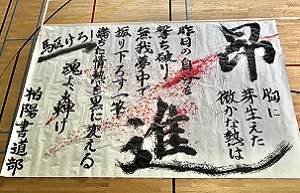 昂
胸に
芽生えた
微かな熱は
昨日の自分を
撃ち破り
無我夢中で
振り下ろす一筆
進
満ちた情熱を黒に変える
駆けろ!
魂よ、輝け
柏陽書道部